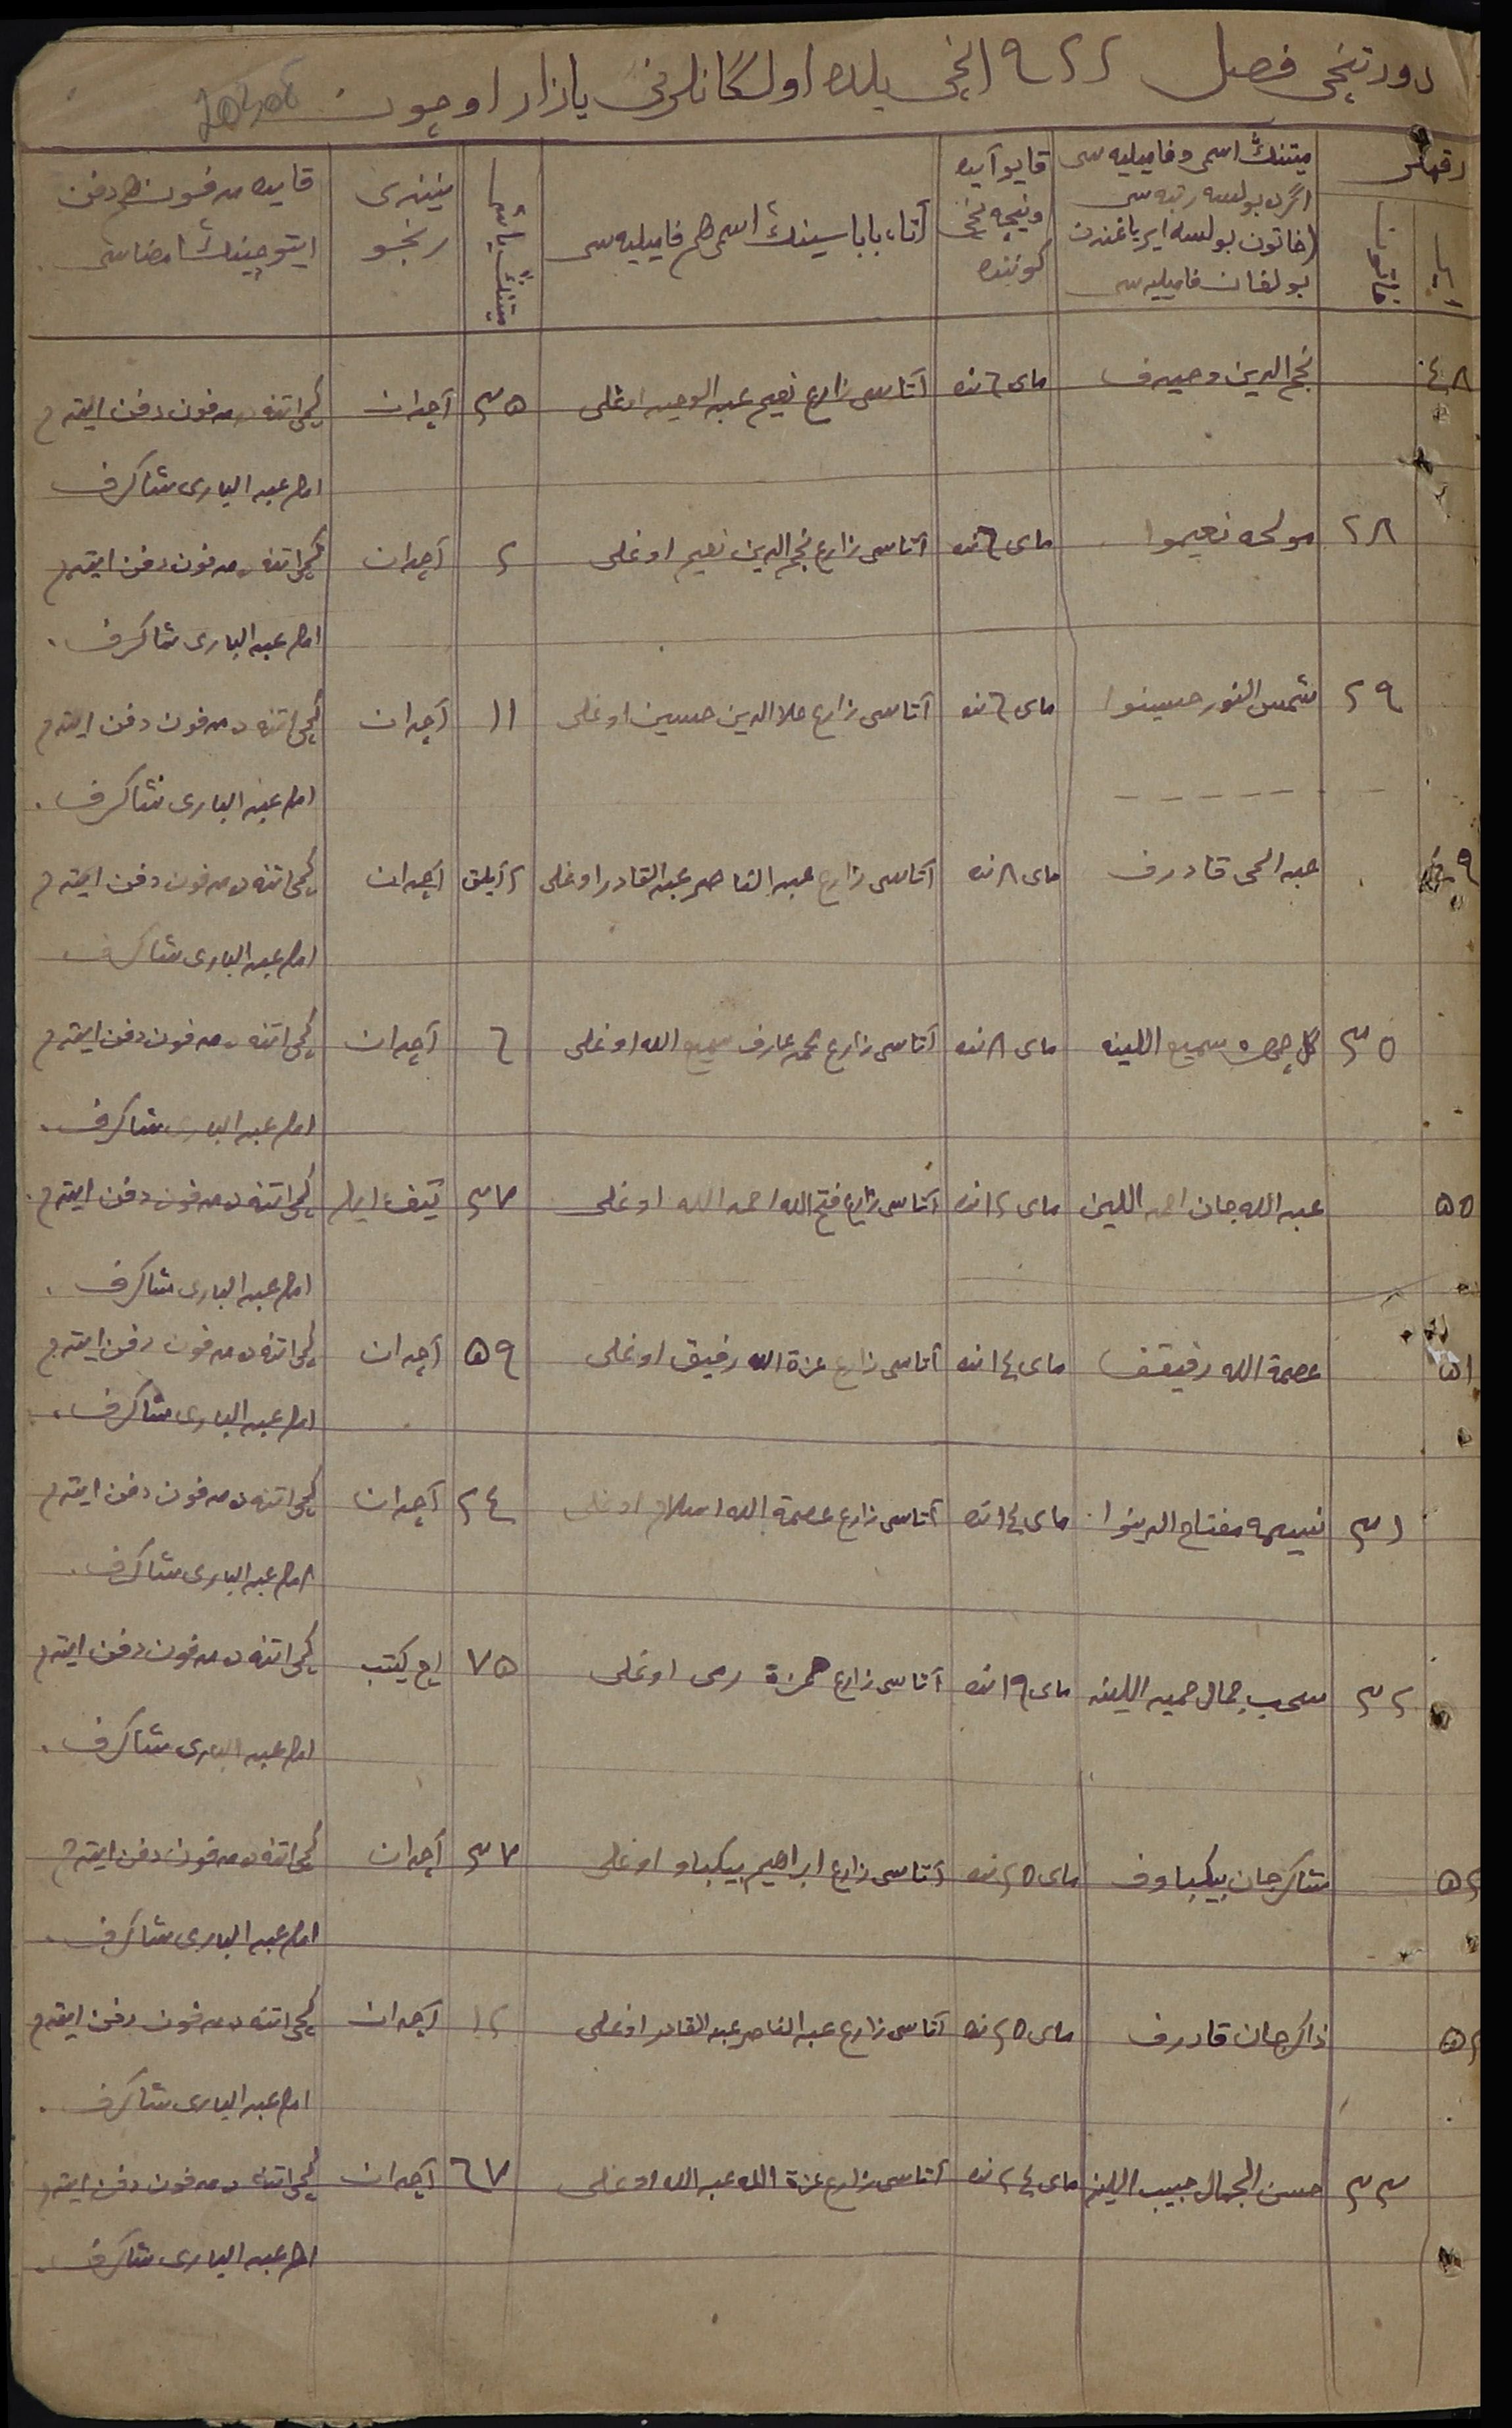 دورتنچی فصل ۹۲۲ انچی یلده اولگانلرنی یازار اوچون
رقملر
ایر
خاتون
میتنڭ اسمی و فامیلیه سی
اگرده بولسه رتبه سی
(خاتون بولسه ایر یاغندن
بولغان فامیلیه سی
قایو آیده
ونیچه نچی
کوننده
آتا، باباسینڭ اسمی هم فامیلیه سی
میتنڭ یاشی
رنجو
قایده مدفون هم دفن
ایتوچینڭ امضاسی
٤٨ نجم الدین وحیدف مای ٦ نده آتاسی زارع نعیم عبد الوحید اوغلی ۳۵ آچدان کچی اتنه ده مدفون دفن ایتدم
امام عبد الباری شاکرف
۲۸ نعیموا مای ٦ نده آتاسی زارع نجم الدین نعیم اوغلی ۲ آچدان کچی اتنه ده مدفون دفن ایتدم
امام عبد الباری شاکرف.
۲۹ شمس النور حسینوا مای ٦ نده آتاسی زارع علا الدین حسین اوغلی ۱۱ آچدان کچی اتنه ده مدفون دفن ایتدم
امام عبد الباری شاکرف.
٤٩ عبد الحی قادرف مای ۸ نده آتاسی زارع عبد الناصر عبد القادر اوغلی ۲ آیلق آچدان کچی اتنه ده مدفون دفن ایتدم
امام عبد الباری شاکرف
۳۰ گل چهره سمیع اللینه مای ۸ نده آتاسی زارع محمد عارف سمیع الله اوغلی ٦ آچدان کچی اتنه ده مدفون دفن ایتدم
امام عبد الباری شاکرف.
۵۰ عبد الله جان احمد اللین مای ۱۲ نده آتاسی زارع فتح الله احمد الله اوغلی ۳۷ تیف ایله کچی اتنه ده مدفون دفن ایتدم.
امام عبد الباری شاکرف.
۵۱ عصمة الله رفیقف مای ۱٤ نده آتاسی زارع عزة الله رفیق اوغلی ۵۹ آچدان کچی اتنه ده مدفون دفن ایتدم
امام عبد الباری شاکرف.
۳۱ نسیمه مفتاح الدینوا. مای ۱٤ نده آتاسی زارع عصمة الله اسلام اوغلی ۲٤ آچدان کچی اتنه ده مدفون دفن ایتدم
امام عبد الباری شاکرف.
۳۲ جمال حمید اللینه مای ۱۹ نده آتاسی زارع حمزة اوغلی ۷۵ اچ کیتب کچی اتنه ده مدفون دفن ایتدم
امام عبد الباری شاکرف.
۵۲ شاکرجان بیکباوف مای ۲۰ نده آتاسی زارع ابراهیم بیکباو اوغلی ۳۷ آچدان کچی اتنه ده مدفون دفن ایتدم
امام عبد الباری شاکرف.
ذاکرجان قادرف مای ۲۰ نده آتاسی زارع عبد الناصر عبد القادر اوغلی ۱۲ آچدان کچی اتنه ده مدفون دفن ایتدم
امام عبد الباری شاکرف.
۳۳ حسن الجمال حبیب اللینه مای ۲٤ نده آتاسی زارع عزة الله عبد الله اوغلی ٦۷ آچدان کچی اتنه ده مدفون دفن ایتدم
امام عبد الباری شاکرف.